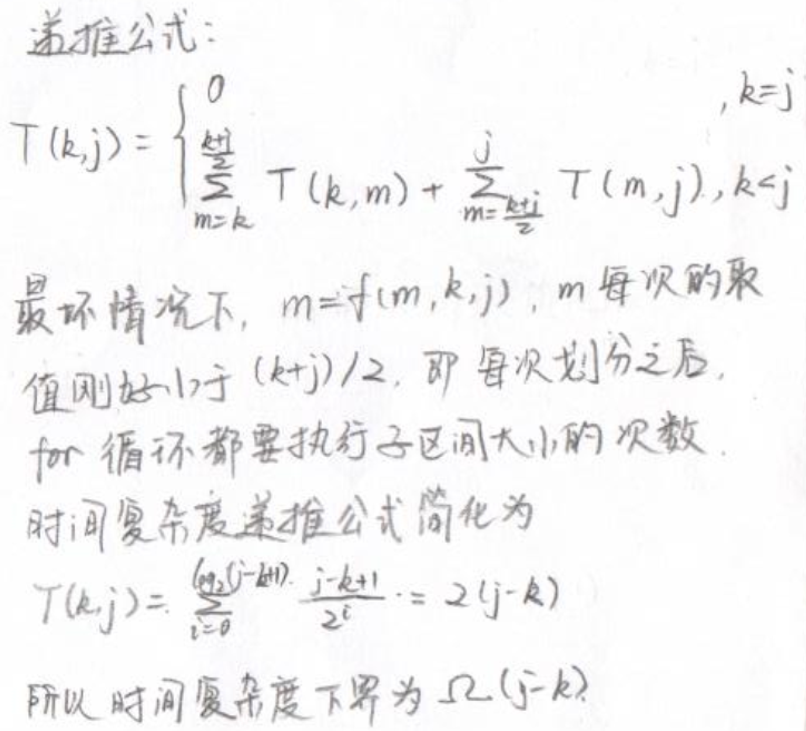 递推公式:
T(k,j) = { 0 , k=j
\sum_{m=k}^{\frac{k+j}{2}} T(k,m) + \sum_{m=\frac{k+j}{2}}^{j} T(m,j), k<j
最坏情况下, m=f(m,k,j), m每次的取
值刚好小于 (k+j)/2, 即每次划分之后,
for 循环都要执行子区间大小的次数.
时间复杂度递推公式简化为
T(k,j) = \sum_{i=0}^{log_2(j-k+1)} \frac{j-k+1}{2^i} = 2(j-k)
所以时间复杂度下界为 Ω(j-k)